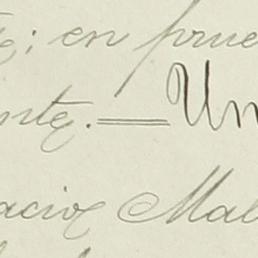 ; en prue
nte. = Un
acio Mal